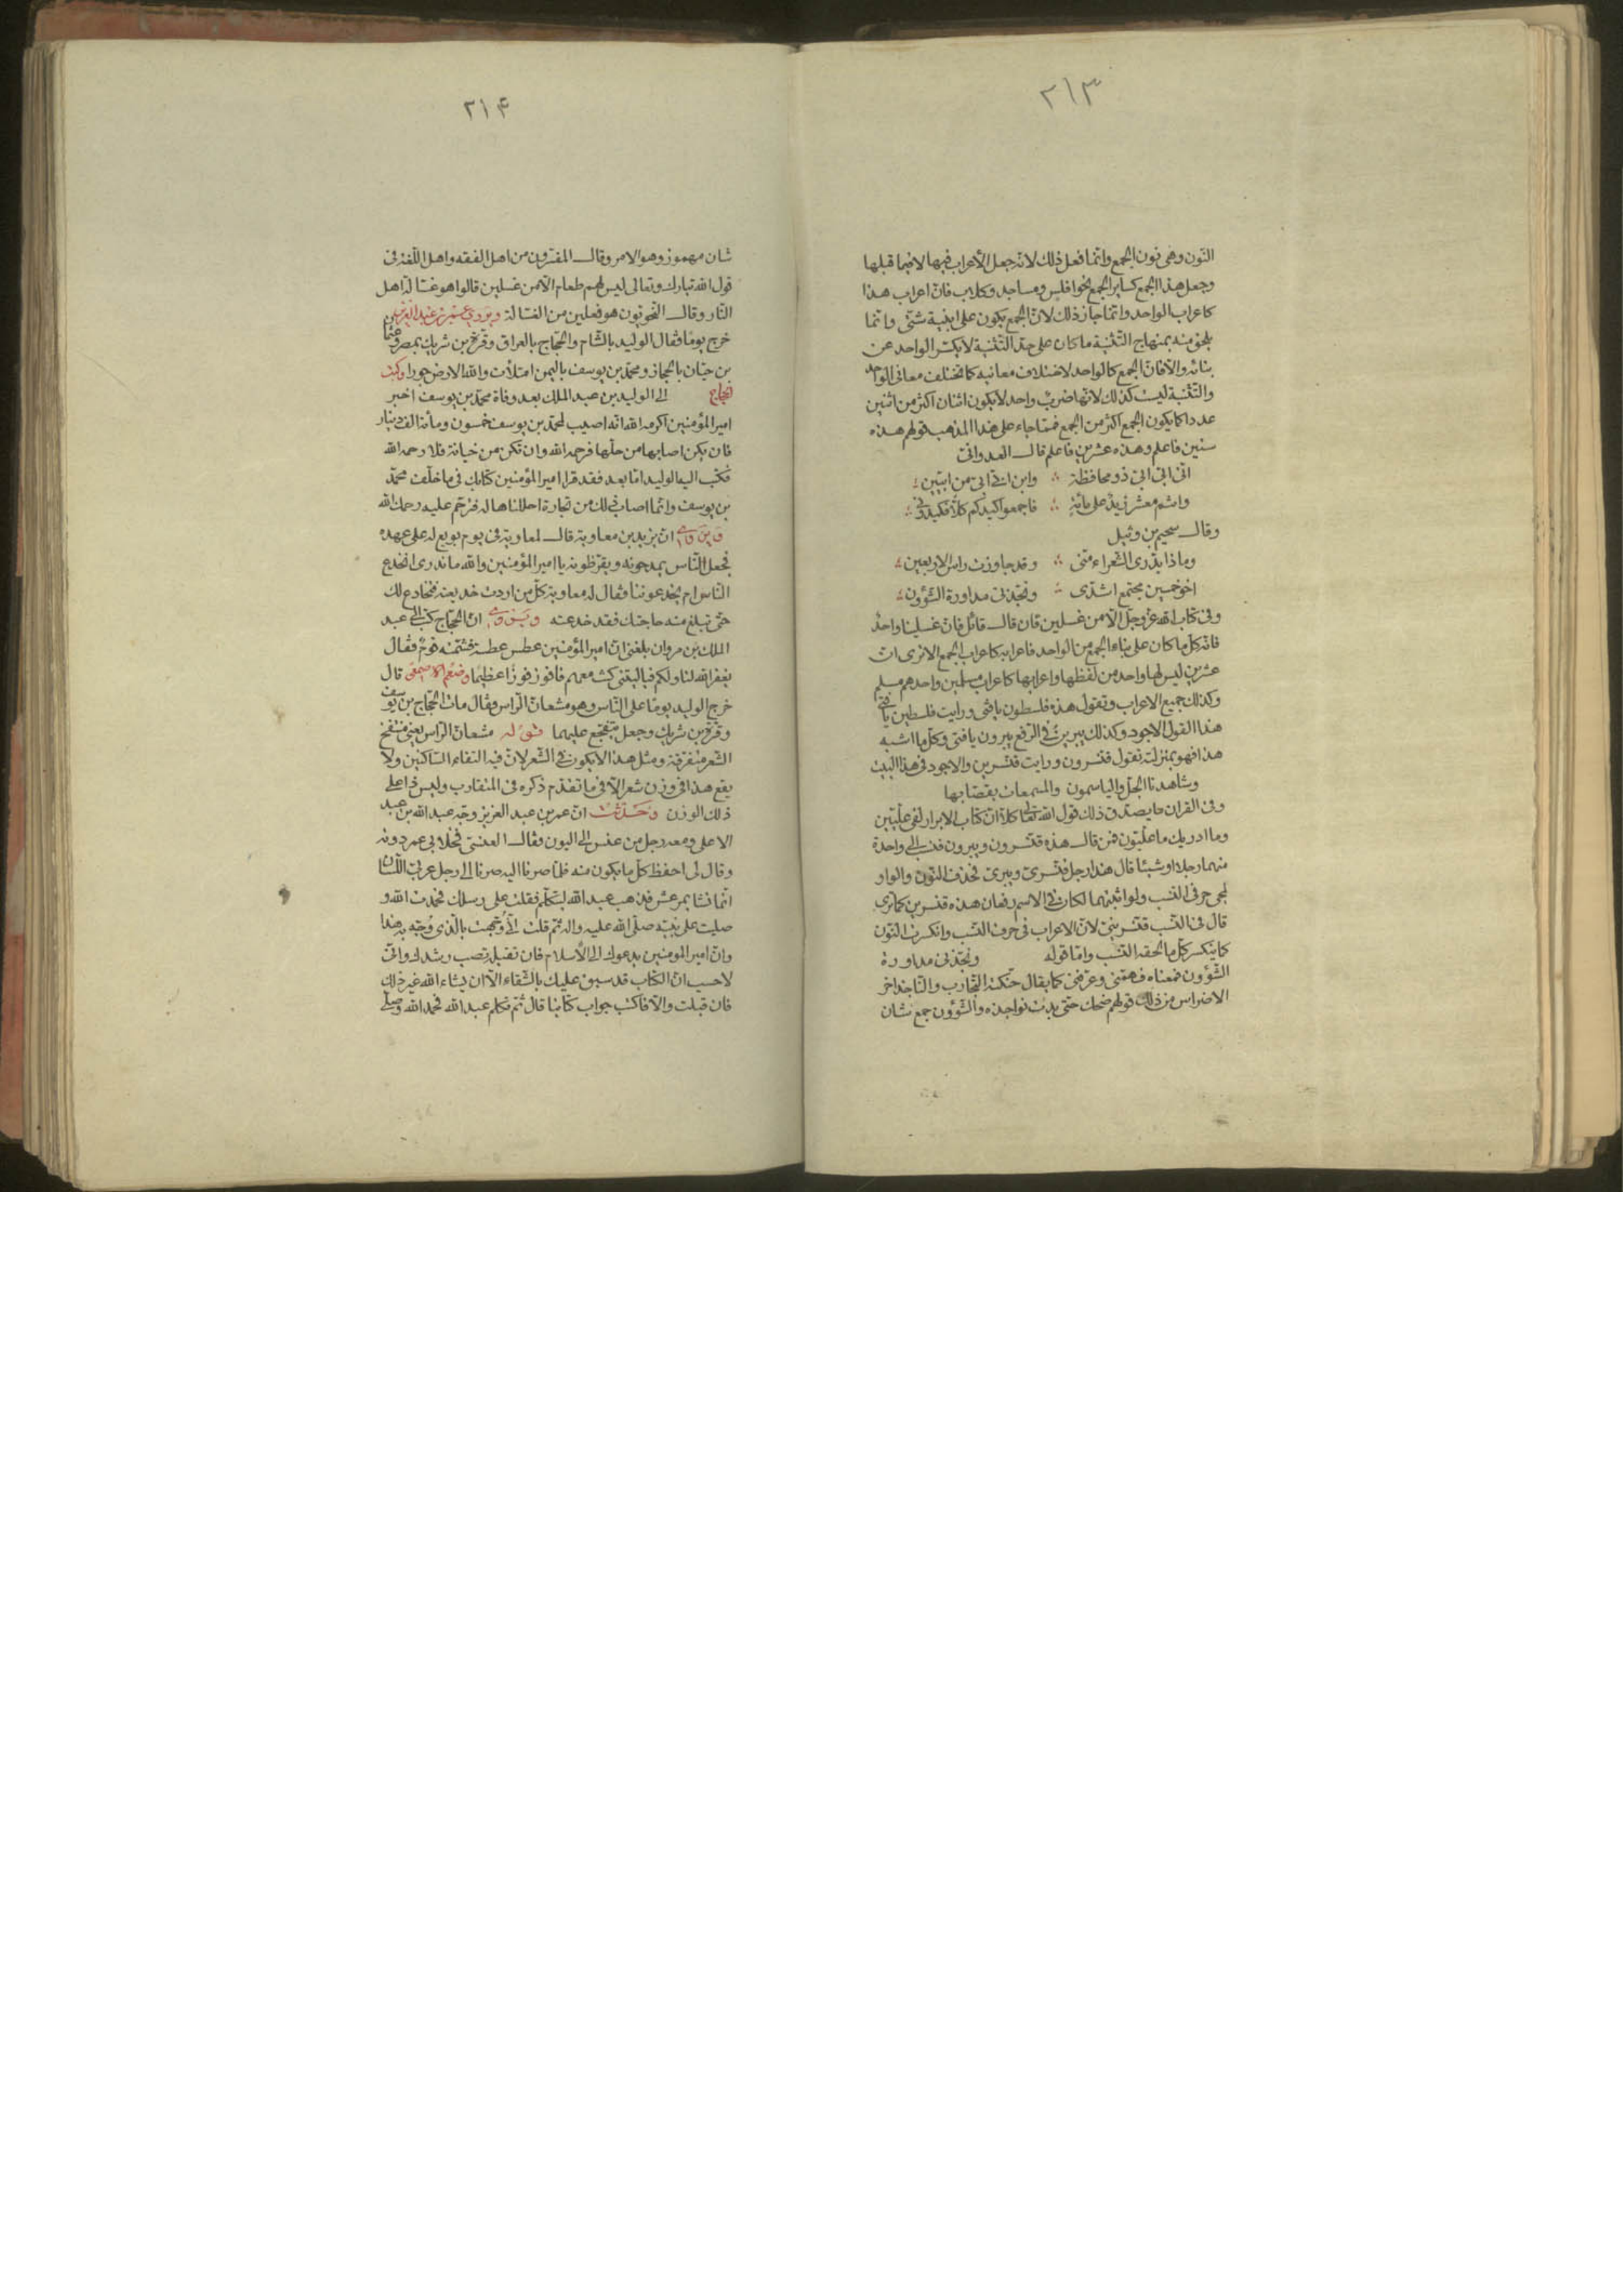 ٢١٣
النون وهى نون الجمع وانما فعل ذلك لانه جعل الأعراب فيها لا فيما قبلها
وجعل هذا الجمع كسائر الجمع نحو افلس ومساجد وكلاب فان اعراب هذا
كاعراب الواحد وانما جاز ذلك لان الجمع يكون على ابنية شتى وانما
يلحق منه بمنهاج التثنية ما كان على حد التثنية لا يكسر الواحد عن
بنائه والا فان الجمع كالواحد لاختلاف معانيه كما تختلف معانى الواحد
والتثنية ليست كذلك لانها ضرب واحد لا يكون اثنان اكثر من اثنين
عددا كما يكون الجمع اكثر من الجمع فمما جاء على هذا المذهب قولهم هذه
سنين فاعلم وهذه عشرين فاعلم قال العدوانى
انى ابى ابى ذو محافظة وابن ابى ابى من ابيين
وانتم معشر زيد على مائة فاجمعوا كيدكم كلا فكيدونى
وقال سحيم بن وثيل
وماذا يدرى الشعراء منى وقد جاوزت راس الاربعين
اخو خمسين مجتمع اشدى ونجذنى مداورة الشؤون
وفى كتاب الله عز وجل الا من غسلين فان قال قائل فان غسلينا واحد
فانه كل ما كان على بناء الجمع من الواحد فاعرابه كاعراب الجمع الا ترى ان
عشرين ليس لها واحد من لفظها واعرابها كاعراب مسلمين واحدهم مسلم
وكذلك جميع الاعراب وتقول هذه فلسطون يافتى ورايت فلسطين يافتى
هذا القول الاجود وكذلك يبرين فى الرفع يبرون يافتى وكل ما اشبه
هذا فهو بمنزلته تقول قنسرون ورايت قنسرين والاجود فى هذا البيت
وشاهدنا الجل والياسمون والمسمعات بقصابها
وفى القران ما يصدق ذلك قول الله تعالى كلا ان كتاب الابرار لفى عليين
وما ادريك ما عليون فمن قال هذه قنسرون ويبرون فنسب الى واحدة
منهما رجلا او شيئا قال هذا رجل قنسرى ويبرى تحذف النون والواو
لمجى حرفى النسب ولو اثبتهما لكان فى الاسم رفعان هذه قنسرين كما ترى
قال فى النسب قنسرينى لان الاعراب فى حرف النسب وانكسرت النون
كما ينكسر كل ما لحقه النسب واما قوله ونجذنى مداورة
الشؤون فمعناه فهمنى وعرفنى كما يقال حنكته التجارب والناجذ اخر
الاضراس من ذلك قولهم ضحك حتى بدت نواجذه والشؤون جمع شان
٢١۴
شان مهموز وهو الامر وقال المفسرون من اهل الفقه واهل اللغة فى
قول الله تبارك وتعالى ليس لهم طعام الا من غسلين قالوا هو غسالة اهل
النار وقال النحويون هو فعلين من الغسالة ويروى عن عمر بن عبد العزيز
خرج يوما فقال الوليد بالشام والحجاج بالعراق وقرة بن شريك بمصر وعثمان
بن حيان بالحجاز ومحمد بن يوسف باليمن امتلأت والله الارض جورا وكتب
الحجاج الى الوليد بن عبد الملك بعد وفاة محمد بن يوسف اخبر
امير المؤمنين اكرمه الله انه اصيب لمحمد بن يوسف خمسون ومأة الف دينار
فان يكن اصابها من حلها فرحمه الله وان تكن من خيانة فلا رحمه الله
فكتب اليه الوليد اما بعد فقد قرا امير المؤمنين كتابك فى ما خلف محمد
بن يوسف وانما اصاب ذلك من تجارة احللناها له فترحم عليه رحمك الله
ويروى ان يزيد بن معاوية قال لمعاوية فى يوم بويع له على عهده
فجعل الناس يمدحونه ويقرظونه يا امير المؤمنين والله ما ندرى انخدع
الناس ام يخدعوننا فقال له معاوية كل من اردت خديعته فتخادع لك
حتى تبلغ منه حاجتك فقد خدعته ويروى ان الحجاج كتب الى عبد
الملك بن مروان بلغنى ان امير المؤمنين عطس عطسة فشمته قوم فقال
يغفر الله لنا ولكم فيا ليتنى كنت معهم فافوز فوزا عظيما وزعم الاصمعى قال
خرج الوليد يوما على الناس وهو مشعان الراس فقال مات الحجاج بن يوسف
وقرة بن شريك وجعل يتفجع عليهما قوله مشعان الراس يعنى منتفخ
الشعر متفرقة ومثل هذا لا يكون فى الشعر لان فيه التقاء الساكنين ولا
يقع هذا فى وزن شعر الا فى ما تقدم ذكره فى المتقارب وليس ذا على
ذلك الوزن وحدثت ان عمر بن عبد العزيز وجه عبد الله بن عبد
الاعلى ومعه رجل من عنس الى اليون فقال العنسى فخلا بى عمر دونه
وقال لى احفظ كل ما يكون منه فلما صرنا اليه صرنا الى رجل عربى اللسان
انما نشا بمرعش فذهب عبد الله ليتكلم فقلت على رسلك فحمدت الله و
صليت على نبيه صلى الله عليه واله ثم قلت انى وجهت بالذى وجه به هذا
وان امير المومنين يدعوك الى الأسلام فان تقبله تصب رشدك وانى
لاحسب ان الكتاب قد سبق عليك بالشقاء الا ان يشاء الله غير ذلك
فان قبلت والا فاكتب جواب كتابنا قال ثم تكلم عبد الله فحمد الله وصلى